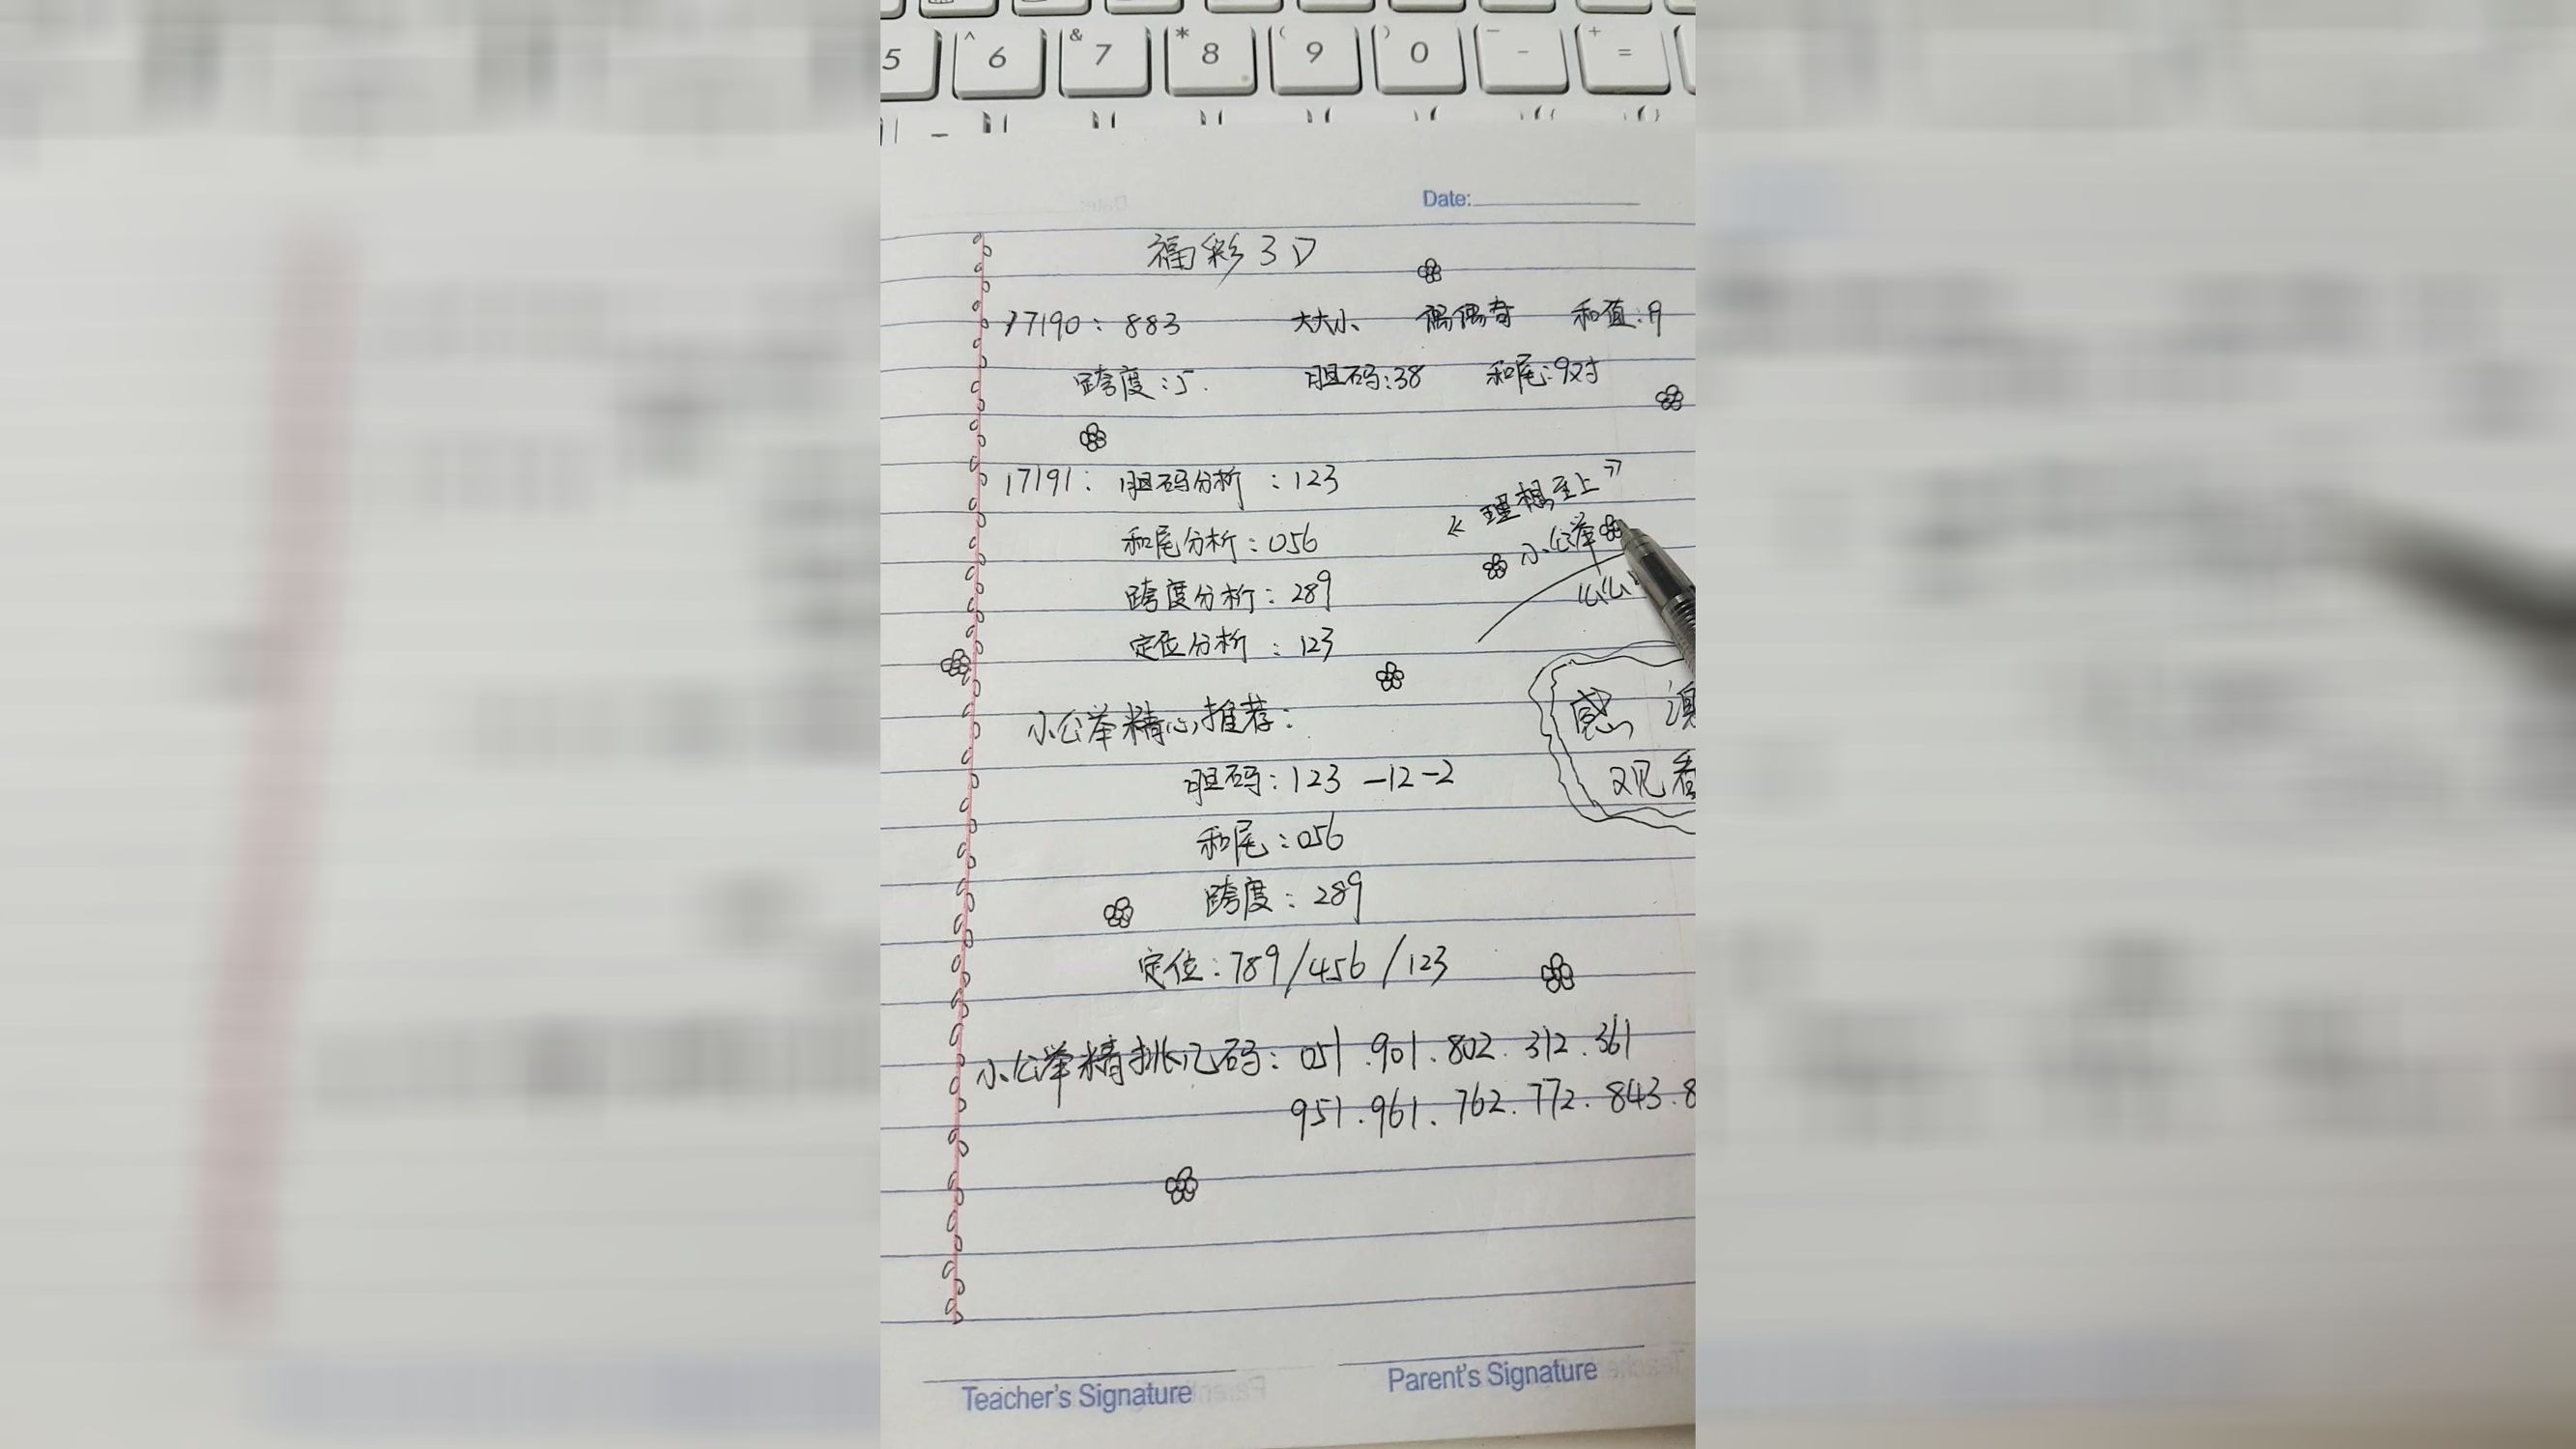 5 ^ 6 & 7 * 8 ( 9 ) 0 - - + =
Date:
福彩3D
17190: 883 大大小 偶偶奇 和值:19
跨度:5. 胆码:38 和尾:9对
17191: 胆码分析:123
《理想至上》
和尾分析:056
小公举
跨度分析:289
定位分析:123
小公举精心推荐:
感谢
胆码:123-12-2
观看
和尾:056
跨度:289
定位:789/456/123
小公举精挑几码:051.901.802.312.361
951.961.762.772.843.8
Teacher's Signature
Parent's Signature